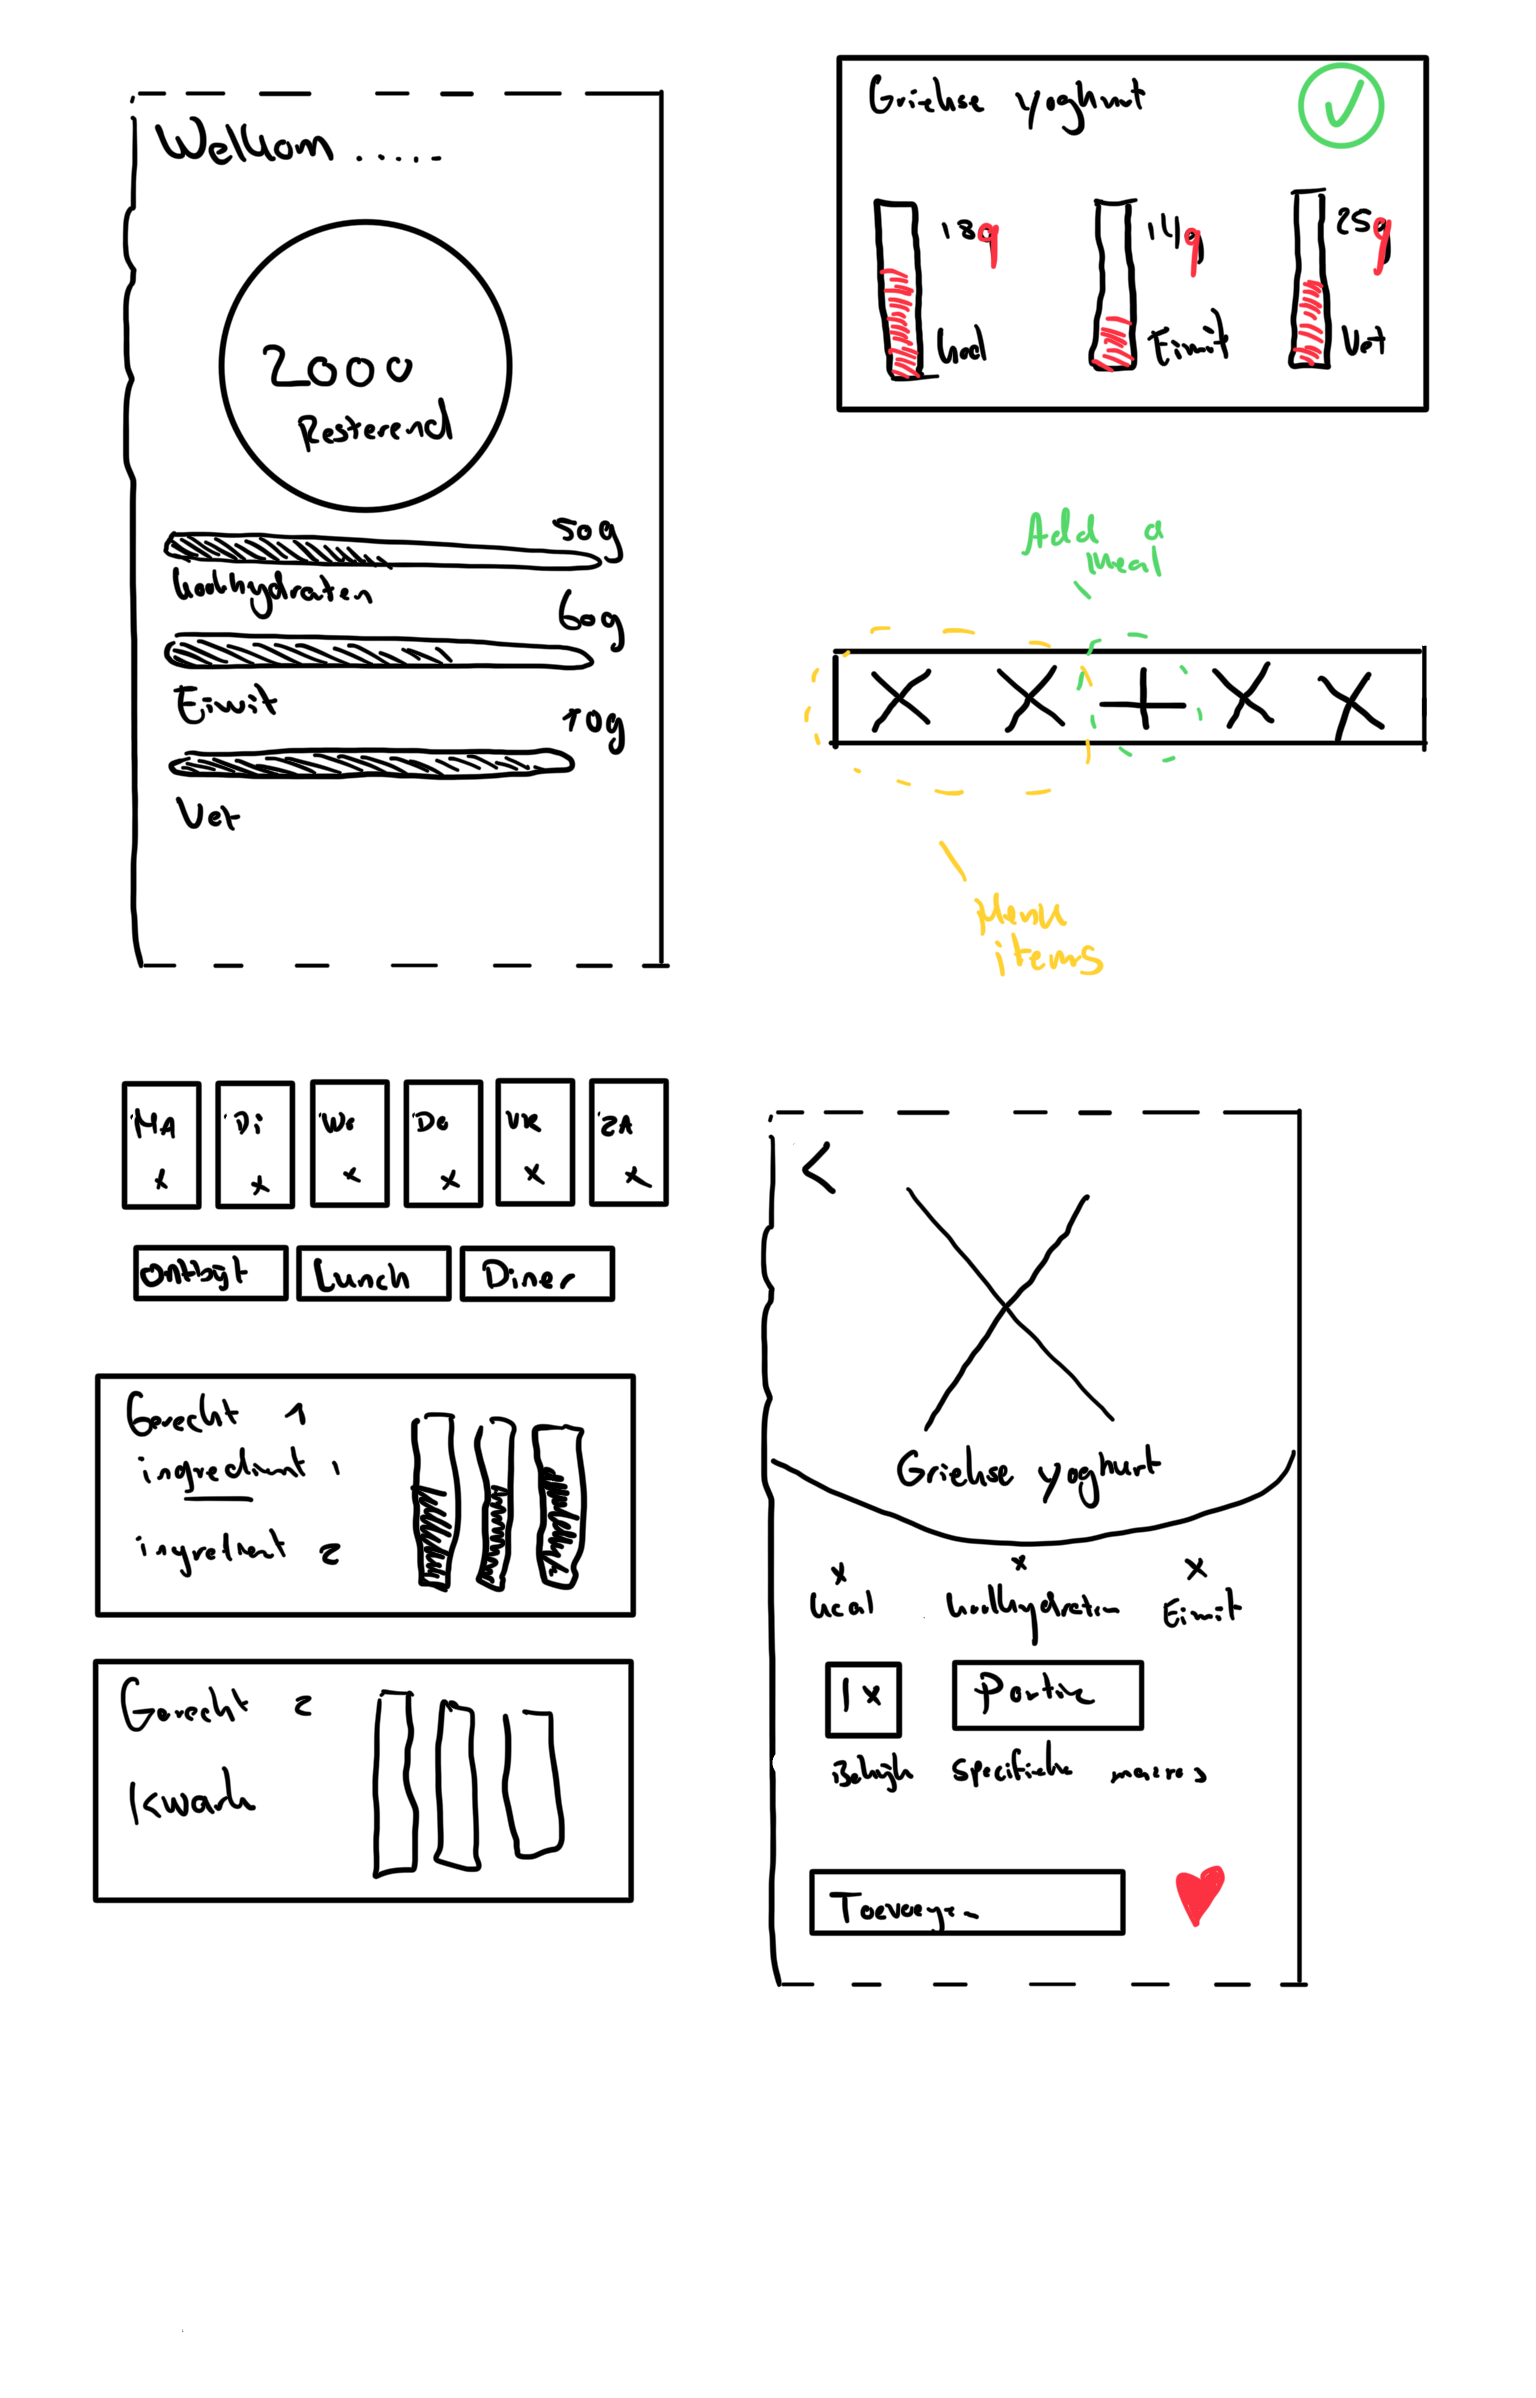 Welkom .....
2000
Resterend
50g
koolhydraten
60g
Eiwit
70g
Vet
Griekse yoghurt
18g
14g
25g
kcal
Eiwit
Vet
Add a
meal
Menu
items
MA
Di
We
Do
VR
ZA
Ontbijt
Lunch
Diner
Gerecht 1
ingredient 1
ingredient 2
Gerecht 2
Kwark
<
Griekse yoghurt
kcal
koolhydraten
Eiwit
1x
Portie
Bekijk specifieke macros
Toevoegen